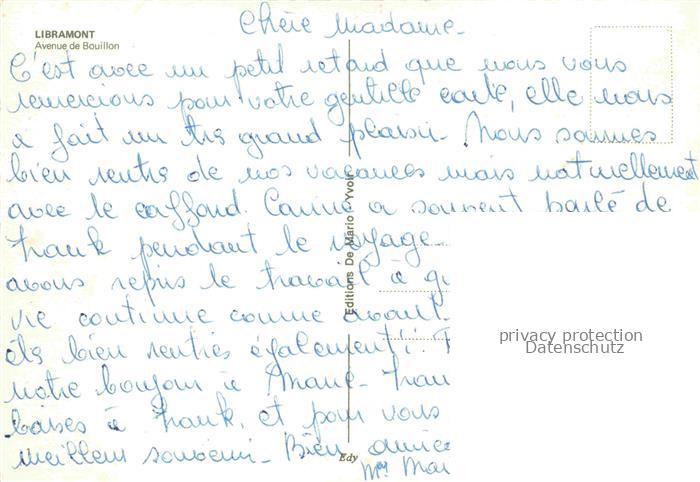 LIBRAMONT
Avenue de Bouillon
Chère madame.
C'est avec un petit retard que nous vous
remercions pour votre gentille carte, elle nous
a fait un très grand plaisir. Nous sommes
bien rentrés de nos vacances mais naturellement
avec le caffard. Carine a souvent parlé de
Frank pendant le voyage
avons repris le travail à
vie continue comme avant.
êts bien rentrés également!!
notre bonjour à Marie-
baises à Frank, et pour vous
meilleur souvenir. Bien
Editions De Mario - Yvoir
Edy
privacy protection
Datenschutz